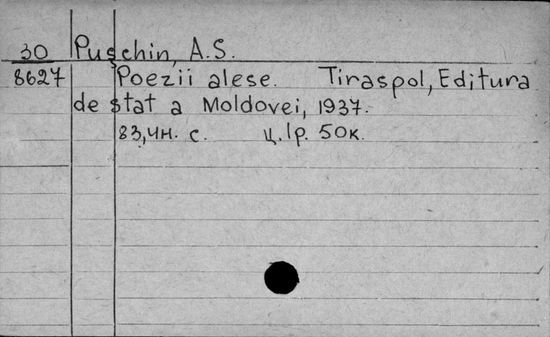 30 Pușchin, A.S.
8627 Poezii alese. Tiraspol, Editura
de stat a Moldovei, 1937.
83, чн. с. ц. 1р. 50к.